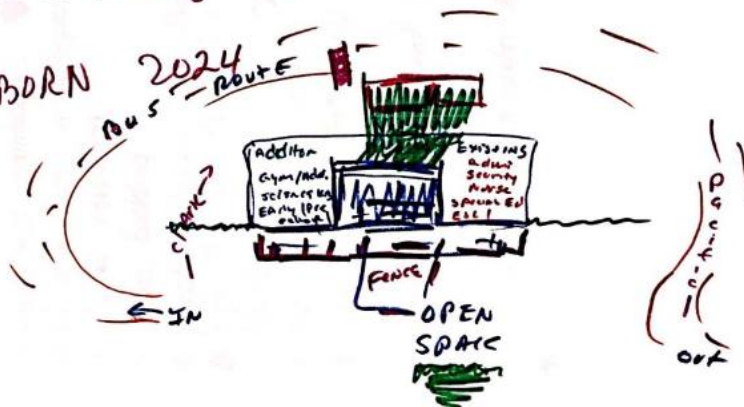 BORN 2024
BUS ROUTE
Addition
Gym/Add.
Science Rm
Early/Pre
School
EXISTING
admin
Security
Nurse
Special Ed
ELL
PARK
FENCE
IN
OPEN
SPACE
Pacific
OUT